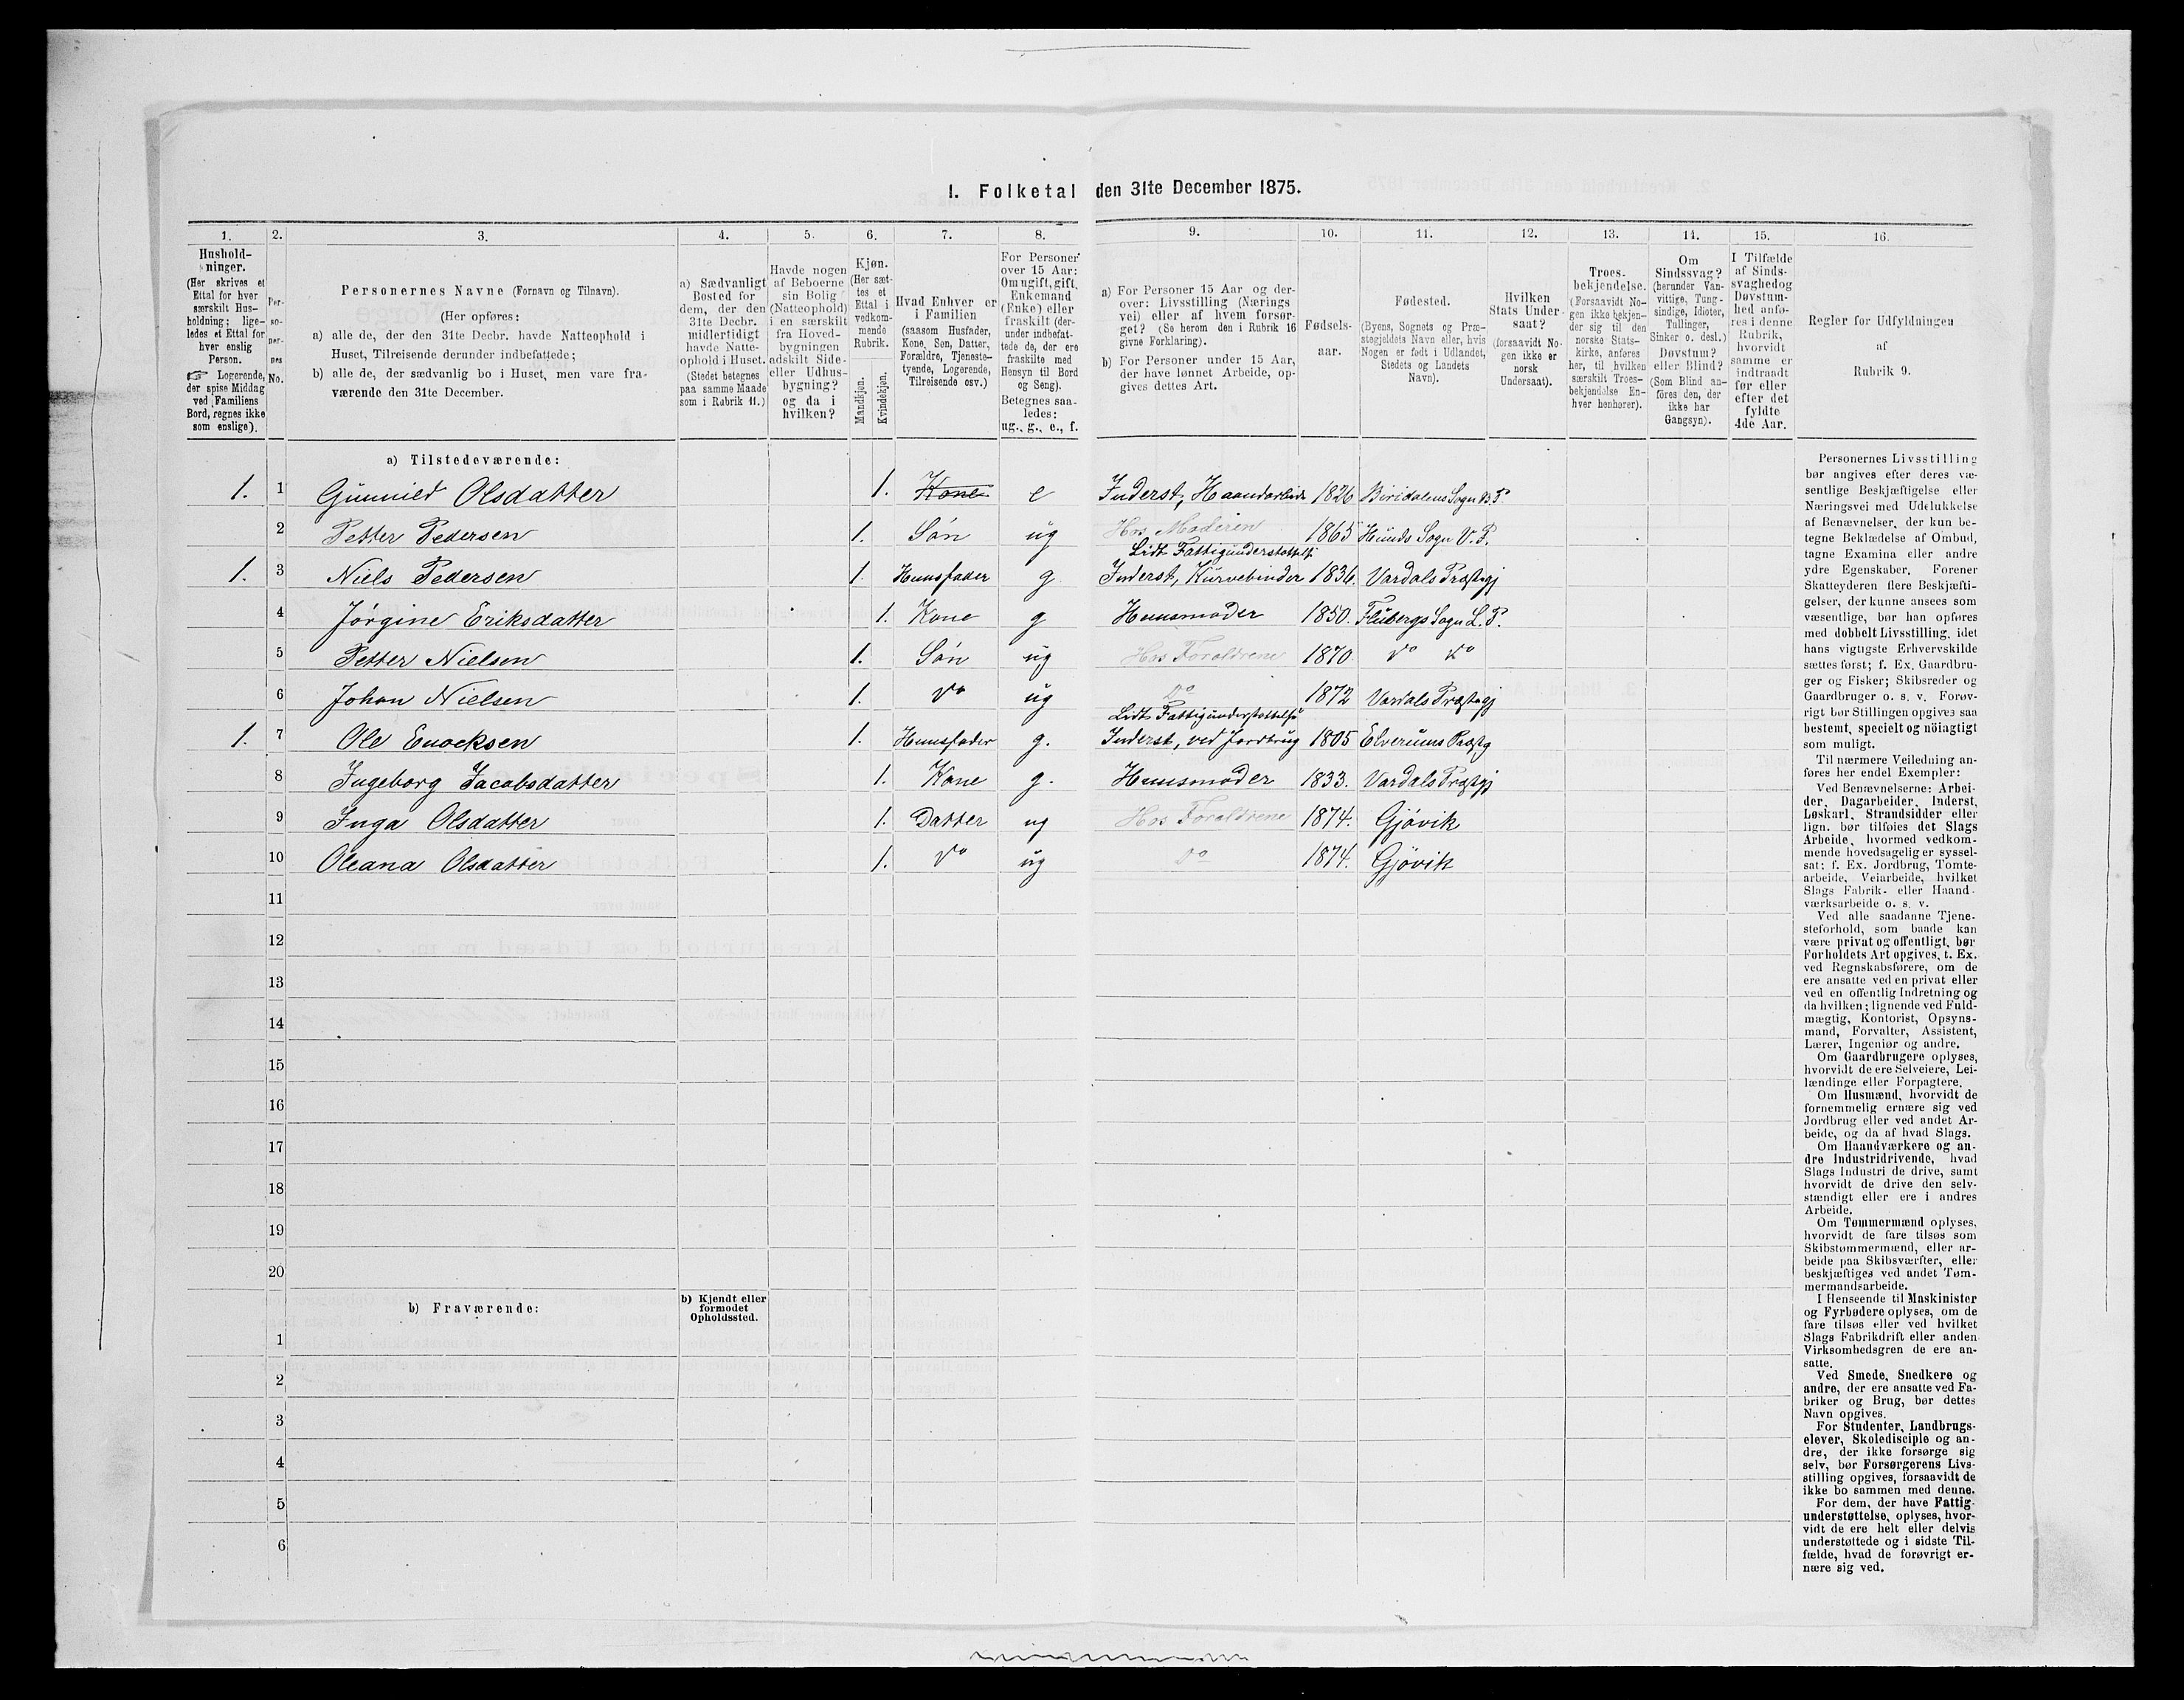 1. Folketal den 31te December 1875.
1. 2. 3. 4. 5. 6. 7. 8. 9. 10. 11. 12. 13. 14. 15. 16.
Hushold-
ninger.
(Her skrives et
Ettal for hver
særskilt Hus-
holdning; lige-
ledes et Ettal for
hver enslig
Person.
☞ Logerende,
der spise Middag
ved Familiens
Bord, regnes ikke
som enslige).
Per-
so-
ner-
nes
No.
Personernes Navne (Fornavn og Tilnavn).
(Her opføres:
a) alle de, der den 31te Decbr. havde Natteophold i
Huset, Tilreisende derunder indbefattede;
b) alle de, der sædvanlig bo i Huset, men vare fra-
værende den 31te December.
a) Sædvanligt
Bosted for
dem, der den
31te Decbr.
midlertidigt
havde Natte-
ophold i Huset.
(Stedet betegnes
paa samme Maade
som i Rubrik 11.)
Havde nogen
af Beboerne
sin Bolig
(Natteophold)
i en særskilt
fra Hoved-
bygningen
adskilt Side-
eller Udhus-
bygning?
og da i
hvilken?
Kjøn.
(Her sæt-
tes et
Ettal i
vedkom-
mende
Rubrik.
Mandkjøn.
Kvindekjøn.
Hvad Enhver er
i Familien
(saasom Husfader,
Kone, Søn, Datter,
Forældre, Tjeneste-
tyende, Logerende,
Tilreisende osv.)
For Personer
over 15 Aar:
Om ugift, gift,
Enkemand
(Enke) eller
fraskilt (der-
under indbefat-
tede de, der ere
fraskilte med
Hensyn til Bord
og Seng).
Betegnes saa-
ledes:
ug., g., e., f.
a) For Personer 15 Aar og der-
over: Livsstilling (Nærings
vei) eller af hvem forsør-
get? (Se herom den i Rubrik 16
givne Forklaring).
b) For Personer under 15 Aar,
der have lønnet Arbeide, op-
gives dettes Art.
Fødsels-
aar.
Fødested.
(Byens, Sognets og Præ-
stegjeldets Navn eller, hvis
Nogen er født i Udlandet,
Stedets og Landets
Navn).
Hvilken
Stats Under-
saat?
(forsaavidt No-
gen ikke er
norsk
Undersaat).
Troes-
bekjendelse.
(Forsaavidt No-
gen ikke bekjen-
der sig til den
norske Stats-
kirke, anføres
her, til hvilken
særskilt Troes-
bekjendelse En-
hver henhører).
Om
Sindssvag?
(herunder Van-
vittige, Tung-
sindige, Idioter,
Tullinger,
Sinker o. desl.)
Døvstum?
eller Blind?
(Som Blind an-
føres den, der
ikke har
Gangsyn).
I Tilfælde
af Sinds-
svaghed og
Døvstum-
hed anfø-
res i denne
Rubrik,
hvorvidt
samme er
indtraadt
før eller
efter det
fyldte
4de Aar.
Regler for Udfyldningen
af
Rubrik 9.
a) Tilstedeværende:
1. 1 Gunnild Olsdatter 1. Kone e Inderst, Haandarbeide 1826 Biridalens Sogn B. P.
2 Petter Pedersen 1. Søn ug Hos Moderen 1865 Hunds Sogn V. P.
Lidt Fattigunderstøttelse
1. 3 Niels Pedersen 1. Huusfader g Inderst, Kurvebinder 1836. Vardals Præstegj
4 Jørgine Eriksdatter 1. Kone g Huusmoder 1850. Flubergs Sogn L. P.
5 Petter Nielsen 1. Søn ug Hos Forældrene 1870. do do
6 Johan Nielsen 1. do ug Do 1872 Vardals Præstegj
Lidt Fattigunderstøttelse
1. 7 Ole Enocksen 1. Huusfader g. Inderst, ved Jordbrug 1805 Elverums Præstg
8 Ingeborg Jacobsdatter 1. Kone g. Huusmoder 1833. Vardals Præstegj
9 Inga Olsdatter 1. Datter ug Hos Forældrene 1874. Gjøvik
10 Oleana Olsdatter 1. do ug Do 1874. Gjøvik
11
12
13
14
15
16
17
18
19
20
b) Fraværende:
b) Kjendt eller
formodet
Opholdssted.
1
2
3
4
5
6
Personernes Livsstilling
bør angives efter deres væ-
sentlige Beskjæftigelse eller
Næringsvei med Udelukkelse
af Benævnelser, der kun be-
tegne Beklædelse af Ombud,
tagne Examina eller andre
ydre Egenskaber. Forener
Skatteyderen flere Beskjæfti-
gelser, der kunne ansees som
væsentlige, bør han opføres
med dobbelt Livsstilling, idet
hans vigtigste Erhvervskilde
sættes først; f. Ex. Gaardbru-
ger og Fisker; Skibsreder og
Gaardbruger o. s. v. Forøv-
rigt bør Stillingen opgives saa
bestemt, specielt og nöiagtigt
som muligt.
Til nærmere Veiledning an-
føres her endel Exempler:
Ved Benævnelserne: Arbei-
der, Dagarbeider, Inderst,
Løskarl, Strandsidder eller
lign. bør tilføies det Slags
Arbeide, hvormed vedkom-
mende hovedsagelig er syssel-
sat: f. Ex. Jordbrug, Tomte-
arbeide, Veiarbeide, hvilket
Slags Fabrik- eller Haand-
værksarbeide o. s. v.
Ved alle saadanne Tjene-
steforhold, som baade kan
være privat og offentligt, bør
Forholdets Art opgives, t. Ex.
ved Regnskabsførere, om de
ere ansatte ved en privat eller
ved en offentlig Indretning og
da hvilken; lignende ved Fuld-
mægtig, Kontorist, Opsyns-
mand, Forvalter, Assistent,
Lærer, Ingeniør og andre.
Om Gaardbrugere oplyses,
hvorvidt de ere Selveiere, Lei-
lændinge eller Forpagtere.
Om Husmænd, hvorvidt de
fornemmelig ernære sig ved
Jordbrug eller ved andet Ar-
beide, og da af hvad Slags.
Om Haandværkere og an-
dre Industridrivende, hvad
Slags Industri de drive, samt
hvorvidt de drive den selv-
stændigt eller ere i andres
Arbeide.
Om Tømmermænd oplyses,
hvorvidt de fare tilsøs som
Skibstømmermænd, eller ar-
beide paa Skibsværfter, eller
beskjæftiges ved andet Tøm-
mermandsarbeide.
I Henseende til Maskinister
og Fyrbødere oplyses, om de
fare tilsøs eller ved hvilket
Slags Fabrikdrift eller anden
Virksomhedsgren de ere an-
satte.
Ved Smede, Snedkere og
andre, der ere ansatte ved Fa-
briker og Brug, bør dettes
Navn opgives.
For Studenter, Landbrugs-
elever, Skoledisciple og an-
dre, der ikke forsørge sig
selv, bør Forsørgerens Livs-
stilling opgives, forsaavidt de
ikke bo sammen med denne.
For dem, der have Fattig-
understøttelse, oplyses, hvor-
vidt de ere helt eller delvis
understøttede og i sidste Til-
fælde, hvad de forøvrigt er-
nære sig ved.